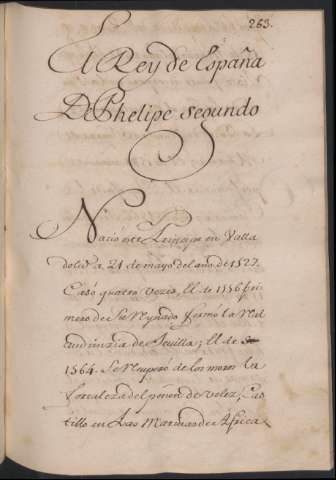 263.
El Rey de España
D. Phelipe segundo
Nacio este Principe en Valla
dolid a 21 de mayo del año de 1527.
Casó quatro vezes, el de 1556 pri
mero de Su Reynado formó la Real
audienzia de Sevilla; el de
1564. Se Recuperó de los moros la
fortaleza del peñon de velez, Cas
tillo en las Marinas de Africa